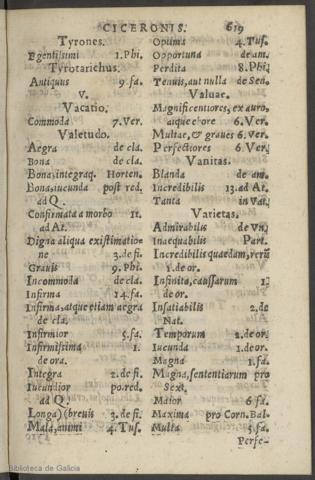 CICERONIS. 619
Tyrones.
Egentissimi 1. Phi.
Tyrotarichus.
Antiquus 9. fa.
V.
Vacatio.
Commoda 7. Ver.
Valetudo.
Aegra de cla.
Bona de cla.
Bona, integraq. Horten.
Bona, iucunda post red.
ad Q.
Confirmata a morbo 11.
ad At.
Digna aliqua existimatio-
ne 3. de fi.
Grauis 9. Phi.
Incommoda de cla.
Infirma 14. fa.
Infirma, atque etiam aegra
de cla.
Infirmior 5. fa.
Infirmissima 1.
de ora.
Integra 2. de fi.
Iucundior po. red.
ad Q.
Longa) (breuis 3. de fi.
Mala, animi 4. Tus.
Optima 4. Tus.
Opportuna de am.
Perdita 8. Phi.
Tenuis, aut nulla de Sen.
Valuae.
Magnificentiores, ex auro,
atque ebore 6. Ver.
Multae, & graues 6. Ver.
Perfectiores 6. Ver.
Vanitas.
Blanda de am.
Incredibilis 13. ad At.
Tanta in Vat.
Varietas.
Admirabilis de Vn.
Inaequabilis Part.
Incredibilis quaedam, rerū
1. de or.
Infinita, caussarum 1.
de or.
Insatiabilis 2. de
Nat.
Temporum 2. de or.
Iucunda 1. de or.
Magna 1. fa.
Magna, sententiarum pro
Sext.
Maior 6. fa.
Maxima pro Corn. Bal.
Multa 5. fa.
Perfe-
Biblioteca de Galicia